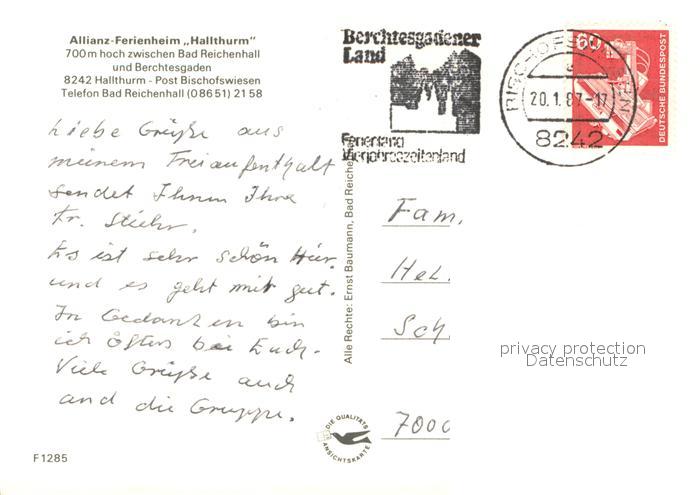 Allianz-Ferienheim „Hallthurm"
700 m hoch zwischen Bad Reichenhall
und Berchtesgaden
8242 Hallthurm - Post Bischofswiesen
Telefon Bad Reichenhall (0 86 51) 21 58
Liebe Grüße aus
meinem Freiaufenthalt
sendet Ihnen Ihre
Fr. Stiehr.
Es ist sehr schön hier
und es geht mir gut.
In Gedanken bin
ich öfters bei Euch.
Viele Grüße auch
and die Gruppe.
F 1285
Berchtesgadener
Land
Ferienland
Vierjahreszeitenland
BISCHOFSWIESEN
20.1.87-17
8242
60
DEUTSCHE BUNDESPOST
Alle Rechte: Ernst Baumann, Bad Reiche
Fam.
Hel.
Sch
7000
privacy protection
Datenschutz
DIE QUALITÄTS
ANSICHTSKARTE